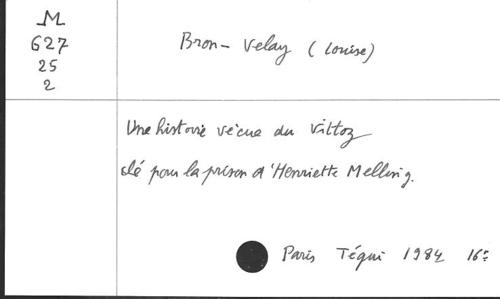 M
627
25
2
Bron-Velay (Louise)
Une histoire vécue du Vittoz
clé pour la prison d'Henriette Melling.
Paris Téqui 1984 16°